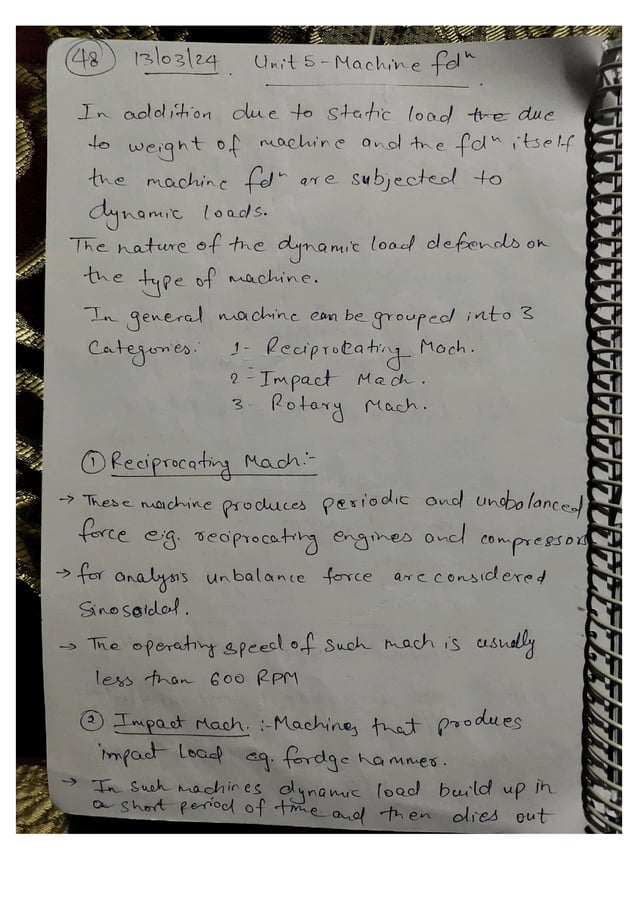 48 13/03/24. Unit 5 - Machine fdⁿ
In addition due to static load the due
to weight of machine and the fdⁿ itself
the machine fdⁿ are subjected to
dynamic loads.
The nature of the dynamic load depends on
the type of machine.
In general machine can be grouped into 3
Categories: 1- Reciprocating Mach.
2- Impact Mach.
3- Rotary Mach.
① Reciprocating Mach:-
→ These machine produces periodic and unbalanced
force e.g. reciprocating engines and compressors
→ for analysis unbalance force are considered
Sinosoidal.
→ The operating speed of such mach is usually
less than 600 RPM
② Impact Mach. :- Machines that produes
impact load eg. fordge hammer.
→ In such machines dynamic load build up in
a short period of time and then dies out